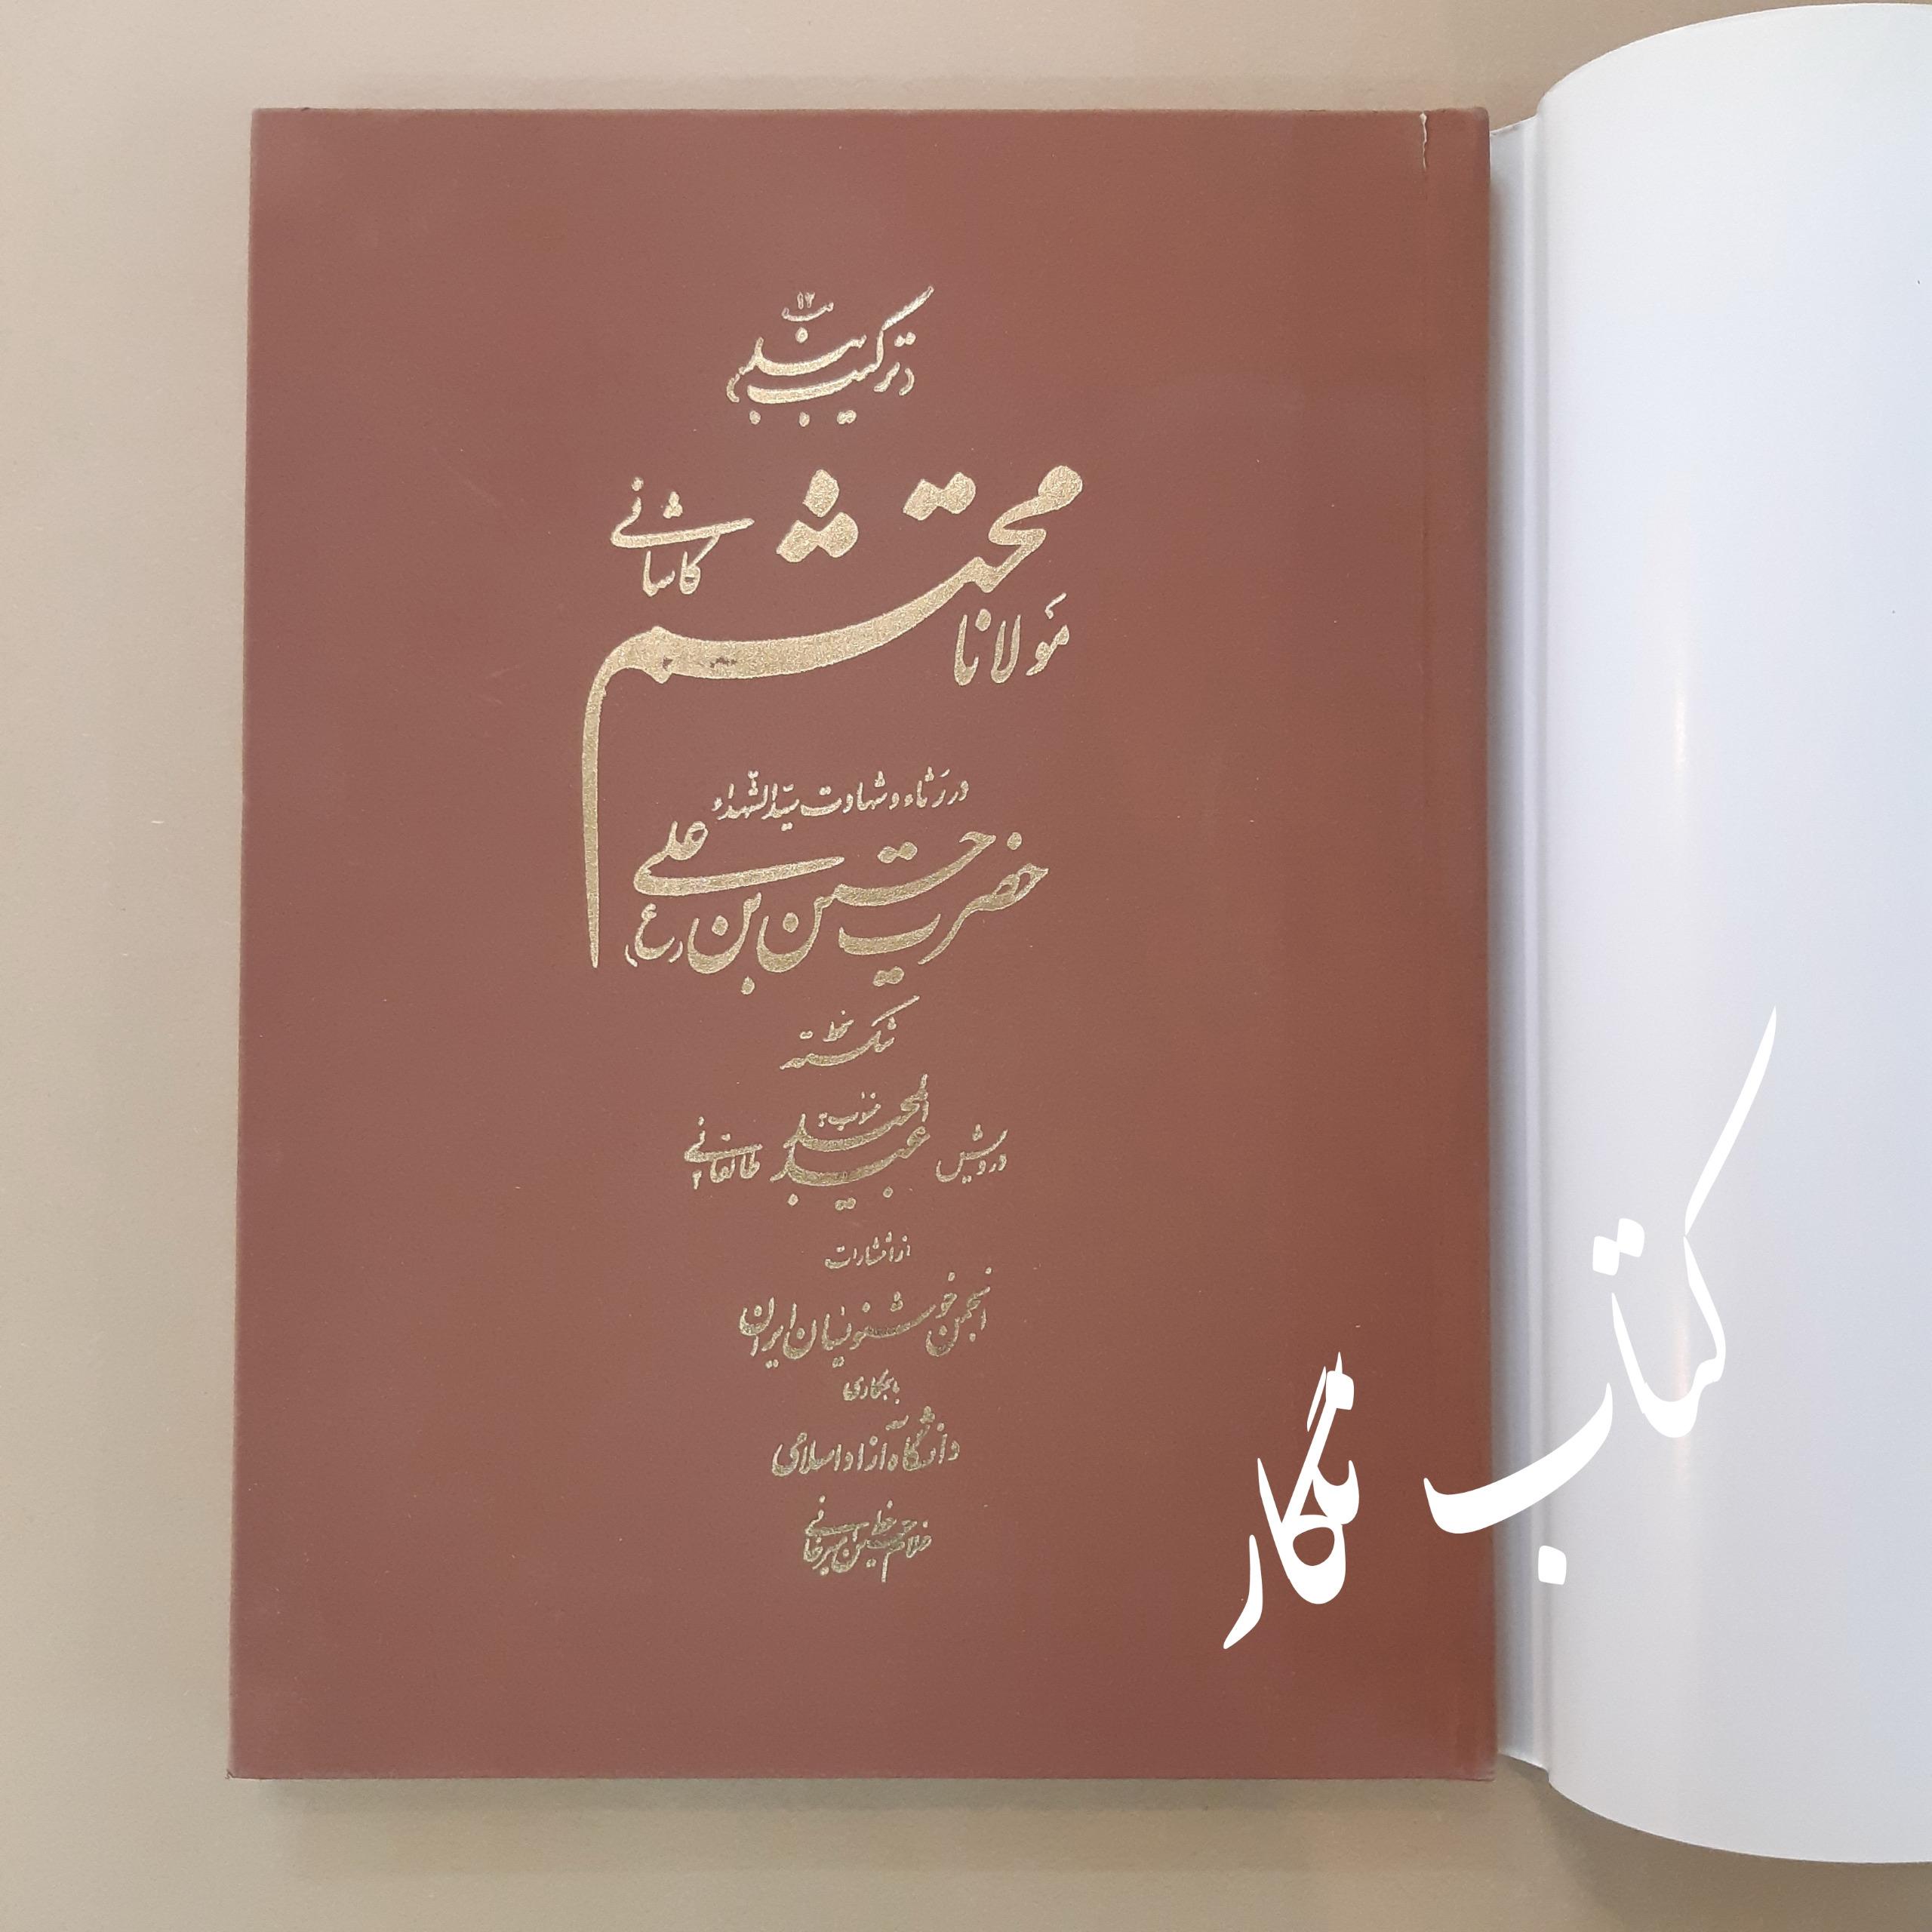 (ترکیب ۱۲ بند)
مولانا محتشم کاشانی
در رثاء و شهادت سیّدالشّهداء
حضرت حسین بن علی (ع)
بخط شکسته
منسوب به
درویش عبدالمجید طالقانی
از انتشارات
انجمن خوشنویسان ایران
با همکاری
دانشگاه آزاد اسلامی
خط غلامحسین امیرخانی
کتاب نگار